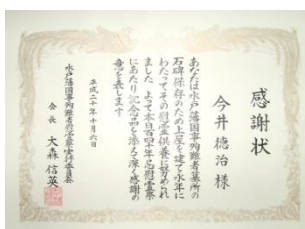 感謝状
今井徳治様
あなたは水戸藩国事殉難者墓所の
石碑保存のため上屋を建て永年に
わたってその慰霊供養に努められ
ました よって本日百四十年忌慰霊祭
にあたり記念品を添えて深く感謝の
意を表します
平成二十年十月六日
水戸藩国事殉難者慰霊祭実行委員会
会長 大森信英